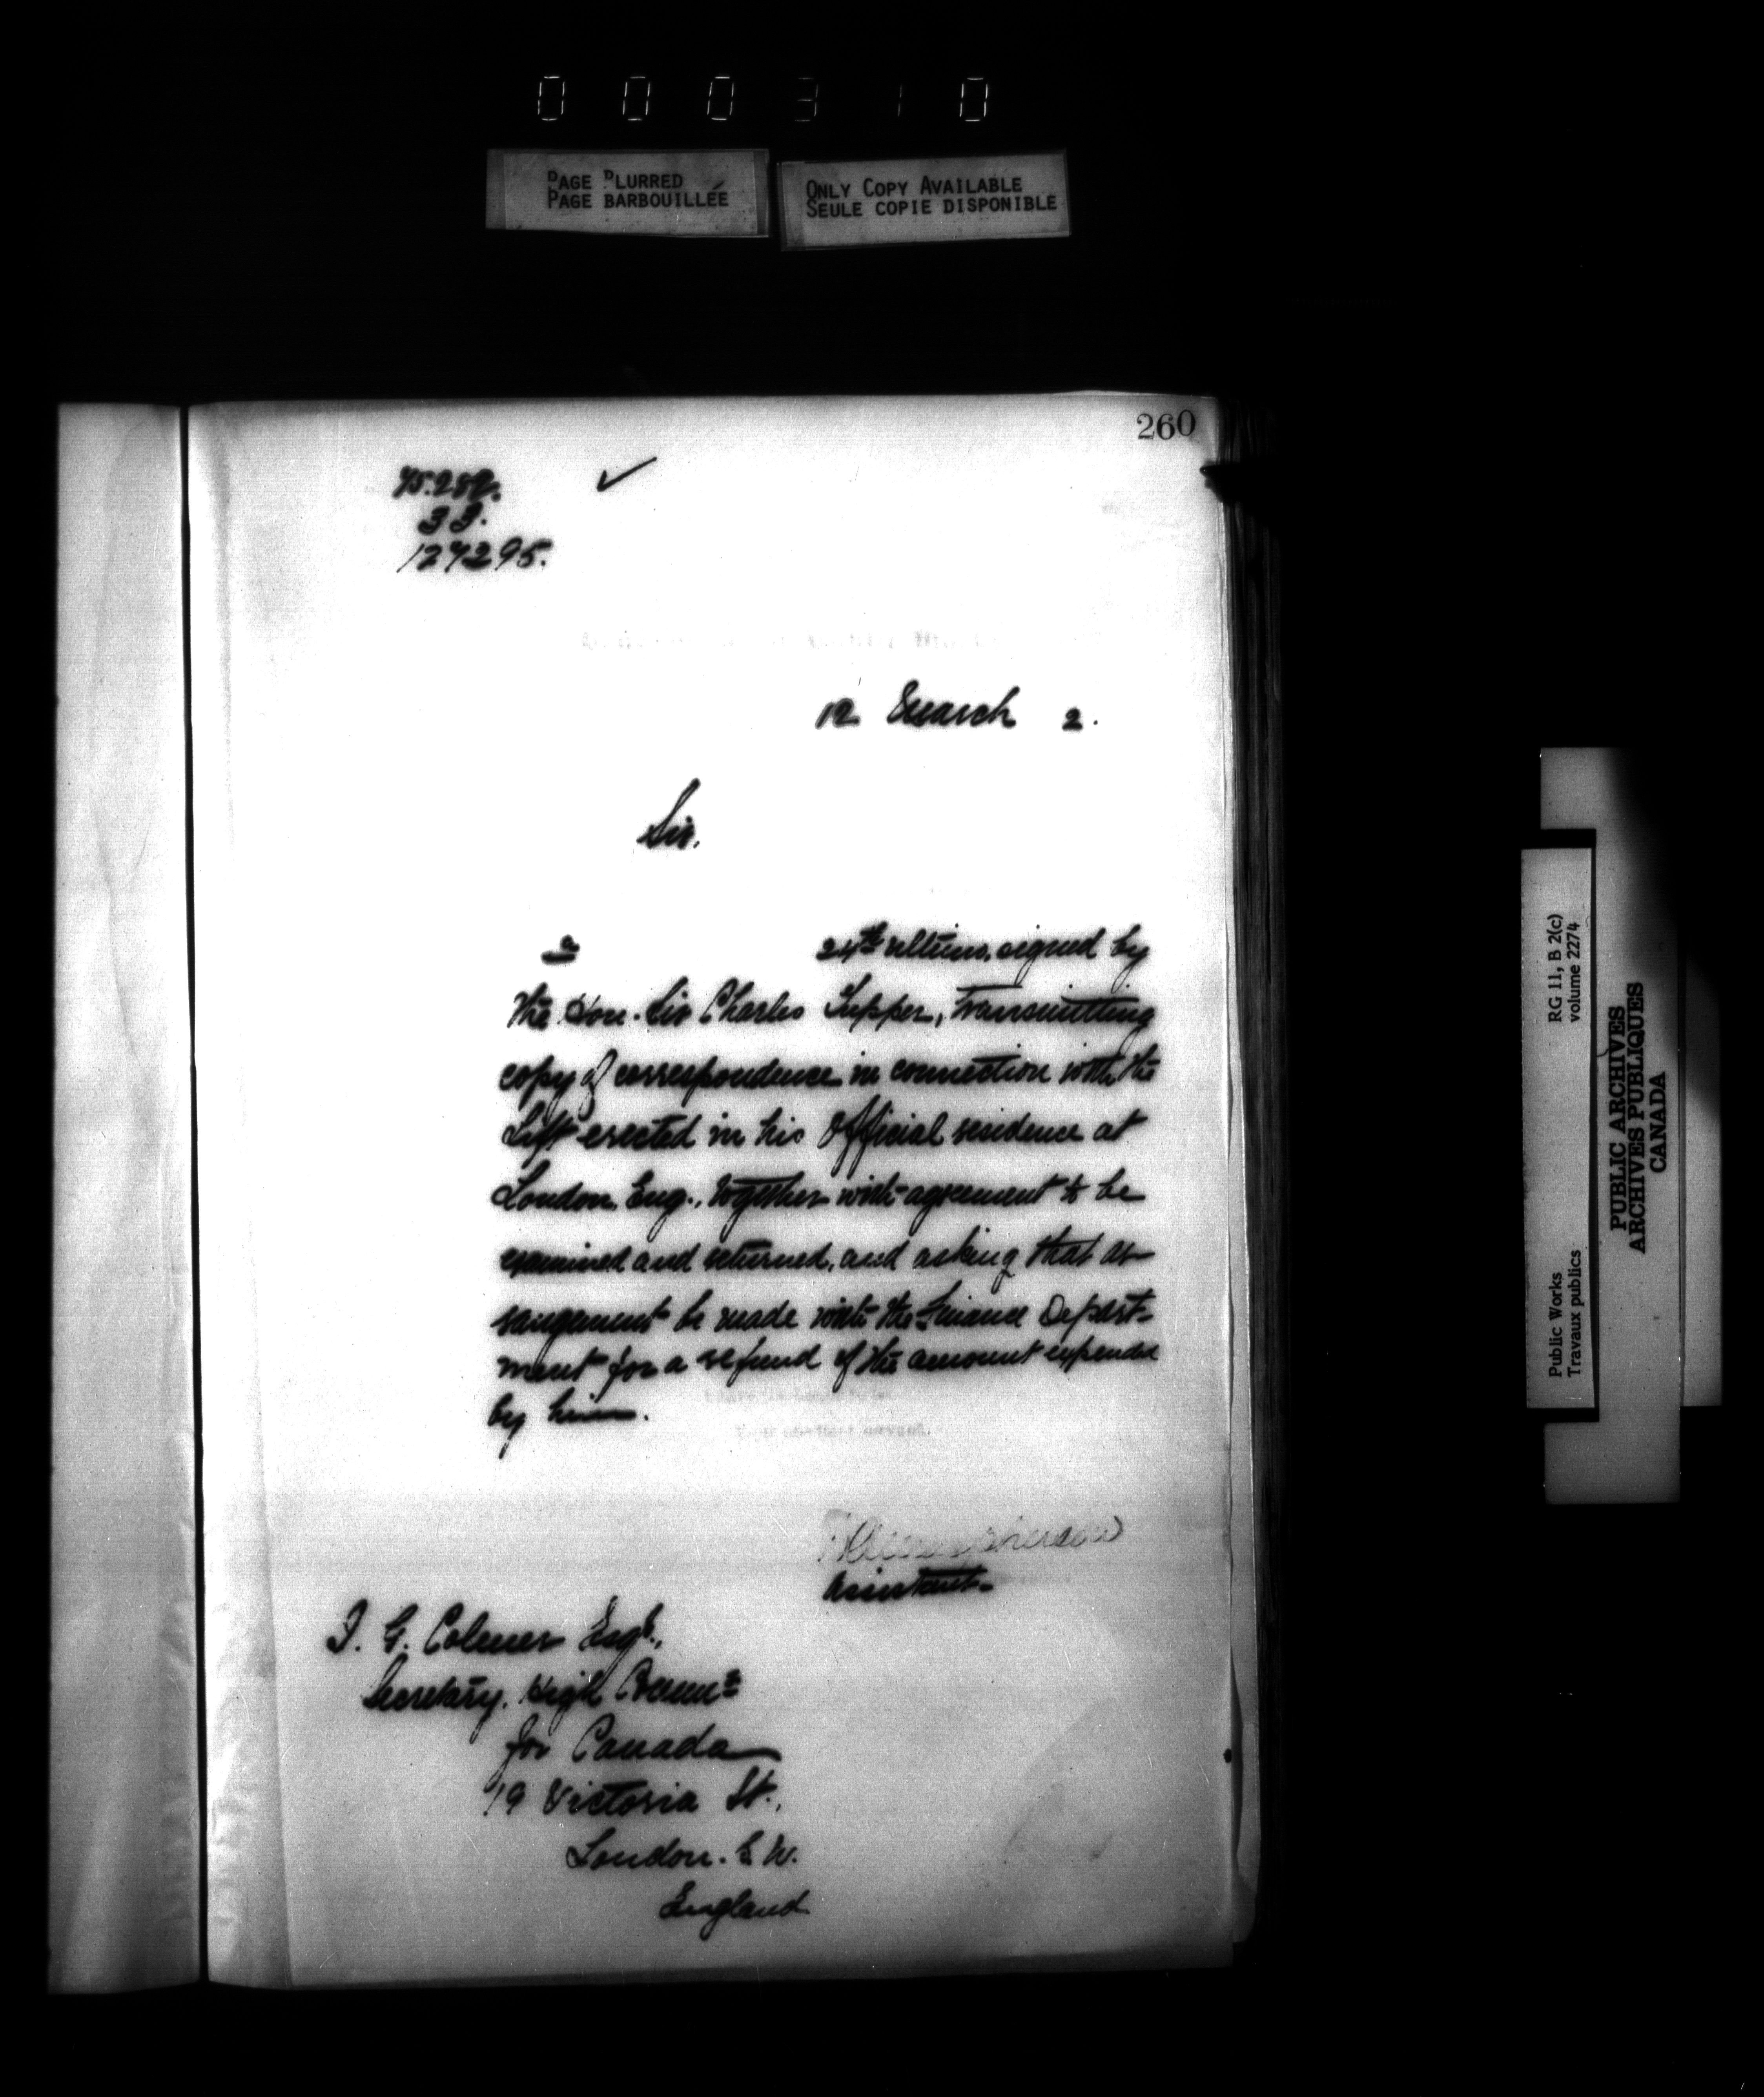 000310
PAGE BLURRED
PAGE BARBOUILLÉE
ONLY COPY AVAILABLE
SEULE COPIE DISPONIBLE
260
75.289.
33.
127295.
12 March 2.
Sir,
a 24th ultimo, signed by
the Hon. Sir Charles Tupper, transmitting
copy of correspondence in connection with the
Lift erected in his Official residence at
London, Eng., together with agreement to be
examined and returned, and asking that ar-
rangement be made with the Finance Depart-
ment for a refund of the amount expended
by him.
Your obedient servant,
Assistant
J. G. Colmer Esqr.,
Secretary. High Commr
for Canada
19 Victoria St.,
London. S.W.
England
RG 11, B 2(c)
volume 2274
Public Works
Travaux publics
PUBLIC ARCHIVES
ARCHIVES PUBLIQUES
CANADA